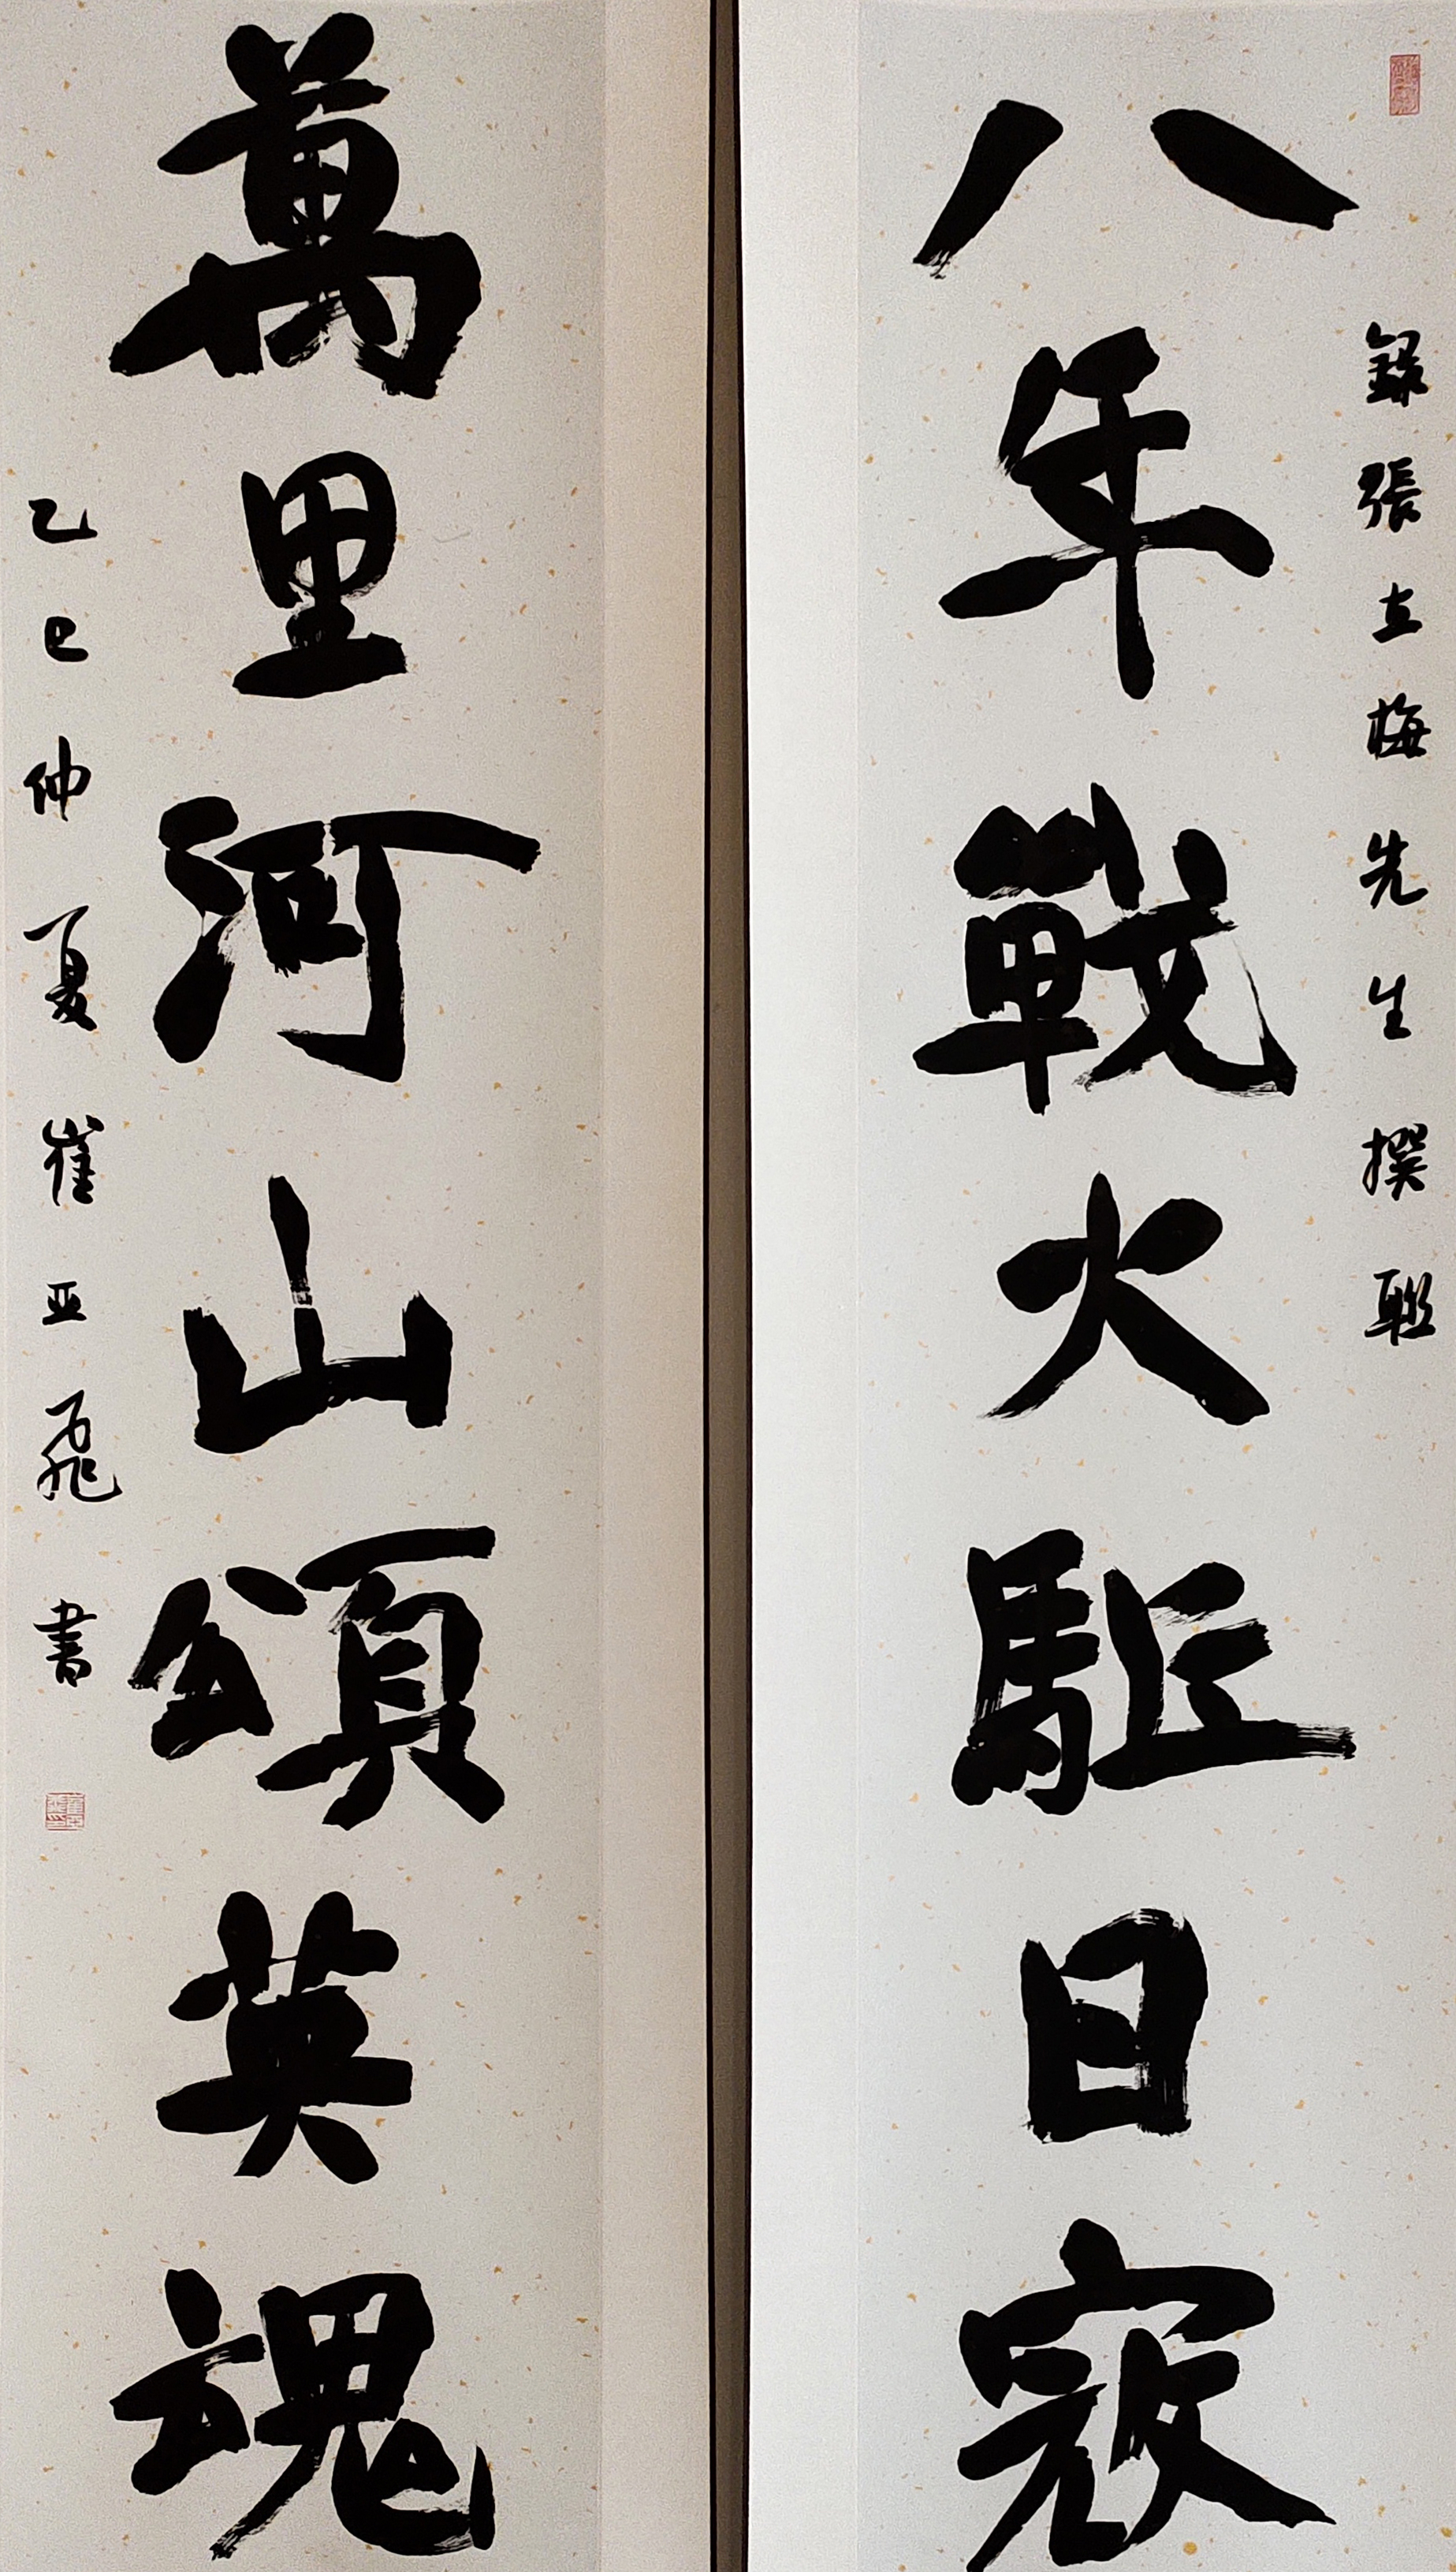 錄張立梅先生撰聯
八年戰火驅日寇
萬里河山頌英魂
乙巳仲夏崔亚飛書